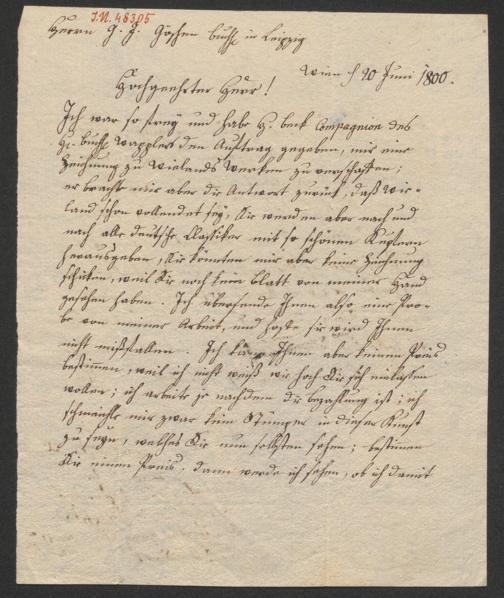 I.N. 48305
Herrn G. J. Göschen buchh in Leipzig
Wien d 20 Juni 1800.
Hochgeehrter Herr!
Ich war so frey und habe H. beck Compagnion des
H. buchh Wapplers den Auftrag gegeben, mir eine
Zeichnung zu Wielands Werken zu verschaffen;
er brachte mir aber die Antwort zurück, daß Wie-
land schon vollendet sey, Sie werden aber nach und
nach alle deutsche Classiker mit so schönen Kupfern
herausgeben, Sie könnten mir aber keine Zeichnung
schicken, weil Sie noch kein Blatt von meiner Hand
gesehen haben. Ich übersende Ihnen also eine Pro-
be von meiner Arbeit, und hoffe sie wird Ihnen
nicht mißfallen. Ich kann Ihnen aber keinen Preis
bestimmen, weil ich nicht weiß wie hoch Sie sich einlassen
wollen; ich arbeite je nachdem die bezahlung ist; ich
schmeichle mir zwar kein Stümper in dieser Kunst
zu seyn, welches Sie nun selbsten sehen; bestimmen
Sie einen Preis, dann werde ich sehen, ob ich damit